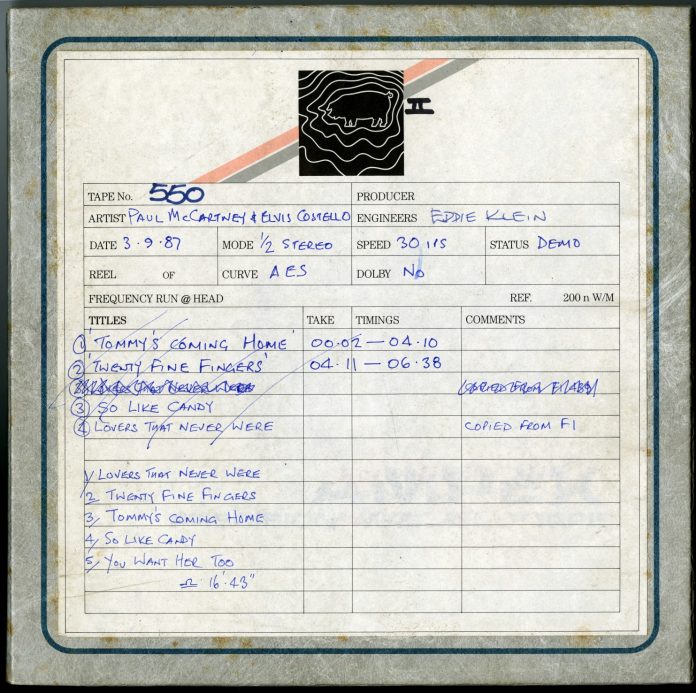 II
TAPE No. 550 PRODUCER
ARTIST PAUL McCARTNEY & ELVIS COSTELLO ENGINEERS EDDIE KLEIN
DATE 3.9.87 MODE 1/2 STEREO SPEED 30 IPS STATUS DEMO
REEL OF CURVE AES DOLBY NO
FREQUENCY RUN @ HEAD REF. 200 n W/M
TITLES TAKE TIMINGS COMMENTS
① 'TOMMY'S COMING HOME' 00.02 — 04.10
② 'TWENTY FINE FINGERS' 04.11 — 06.38
LOVERS THAT NEVER WERE COPIED FROM
③ SO LIKE CANDY
④ LOVERS THAT NEVER WERE COPIED FROM F1
1/ LOVERS THAT NEVER WERE
2/ TWENTY FINE FINGERS
3/ TOMMY'S COMING HOME
4/ SO LIKE CANDY
5/ YOU WANT HER TOO
16'.43"